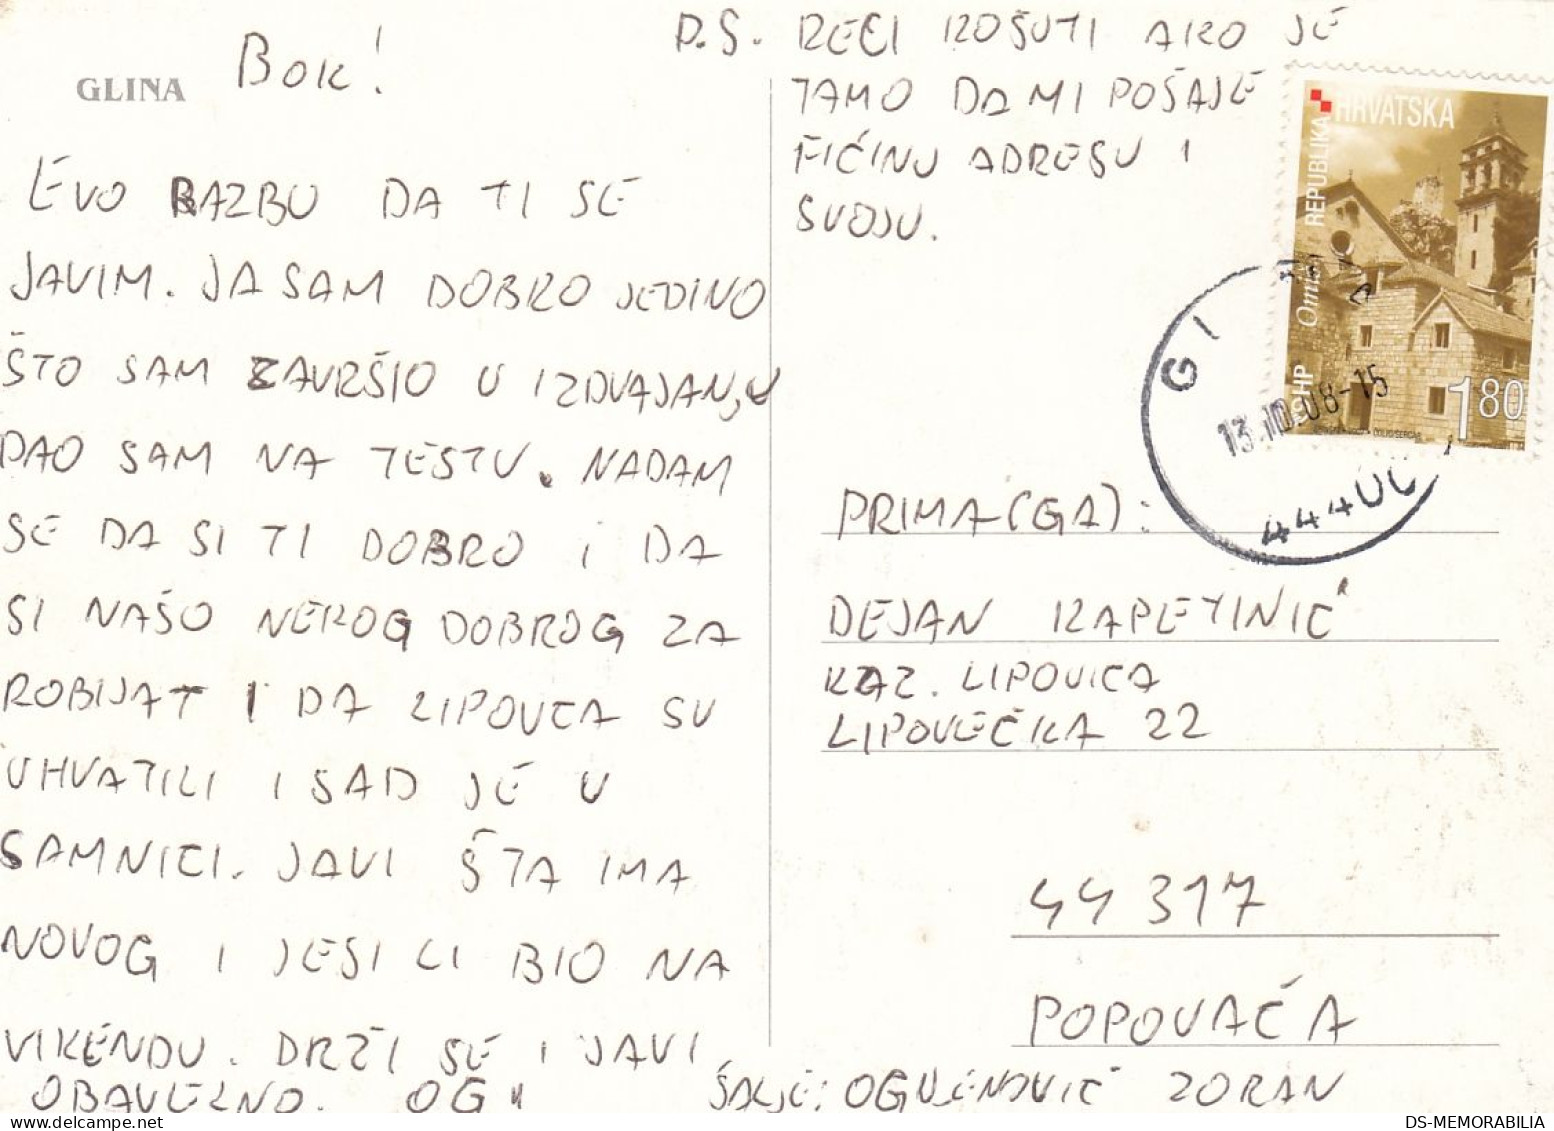 GLINA
BOK!
EVO RAZBU DA TI SE
JAVIM. JA SAM DOBRO JEDINO
ŠTO SAM ZAVRŠIO U IZDVAJANJU
PAO SAM NA TESTU. NADAM
SE DA SI TI DOBRO I DA
SI NAŠO NEKOG DOBROG ZA
ROBIJAT I DA LIPOVCA SU
UHVATILI I SAD JE U
SAMNICI. JAVI ŠTA IMA
NOVOG I JESI LI BIO NA
VIKENDU. DRŽI SE I JAVI
OBAVEZNO. OGI
P.S. RECI KOŠUTI AKO JE
TAMO DA MI POŠALJE
FIĆINU ADRESU I
SVOJU.
REPUBLIKA HRVATSKA
Omiš
HP
1.80
13.10.08-15
PRIMA(GA):
DEJAN KAPETINIĆ
KAZ. LIPOVICA
LIPOVEČKA 22
44 317
POPOVAČA
ŠALJE: OGNJENOVIĆ ZORAN
DS-MEMORABILIA